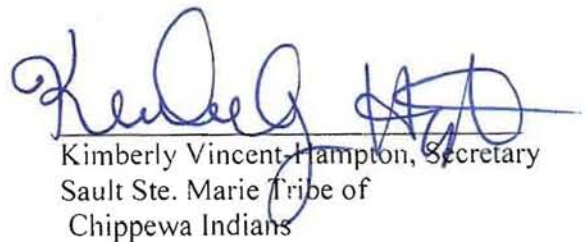 Kimberly Vincent-Hampton, Secretary
Sault Ste. Marie Tribe of
Chippewa Indians